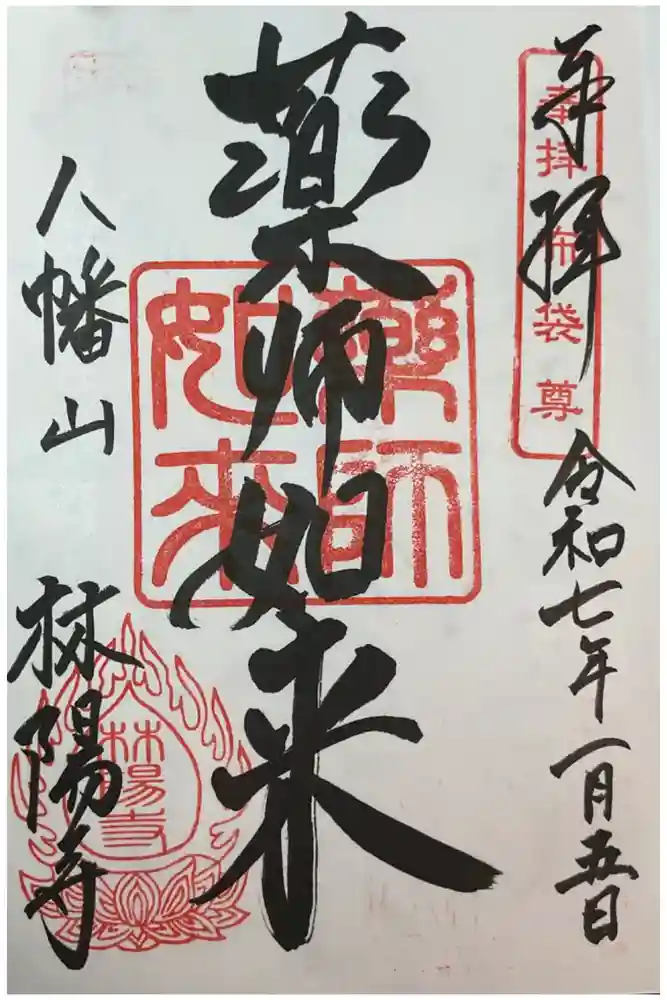 奉拝
奉拝 布袋尊
令和七年一月五日
薬師如来
薬師如来
八幡山
林陽寺
林陽寺